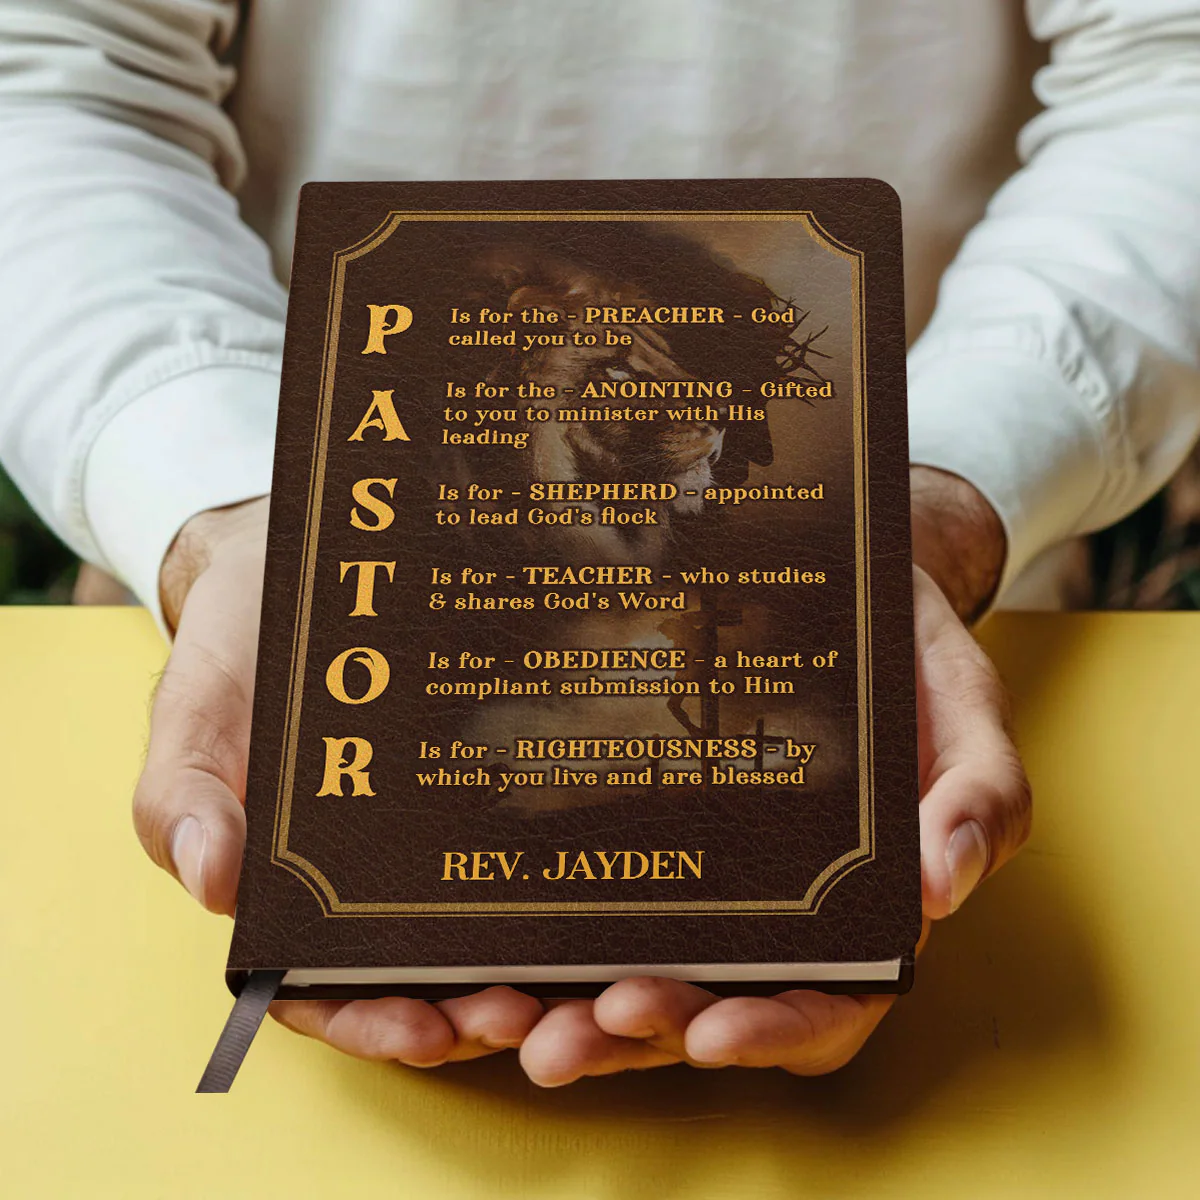 P Is for the - PREACHER - God
called you to be
A Is for the - ANOINTING - Gifted
to you to minister with His
leading
S Is for - SHEPHERD - appointed
to lead God's flock
T Is for - TEACHER - who studies
& shares God's Word
O Is for - OBEDIENCE - a heart of
compliant submission to Him
R Is for - RIGHTEOUSNESS - by
which you live and are blessed
REV. JAYDEN